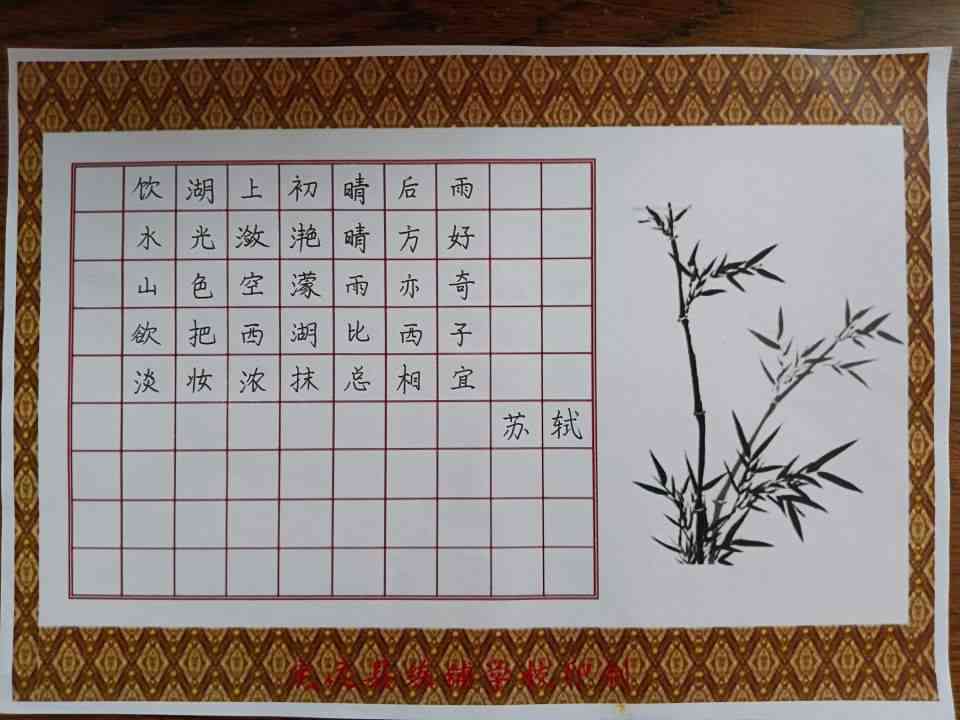 饮湖上初晴后雨
水光潋滟晴方好
山色空濛雨亦奇
欲把西湖比西子
淡妆浓抹总相宜
苏轼